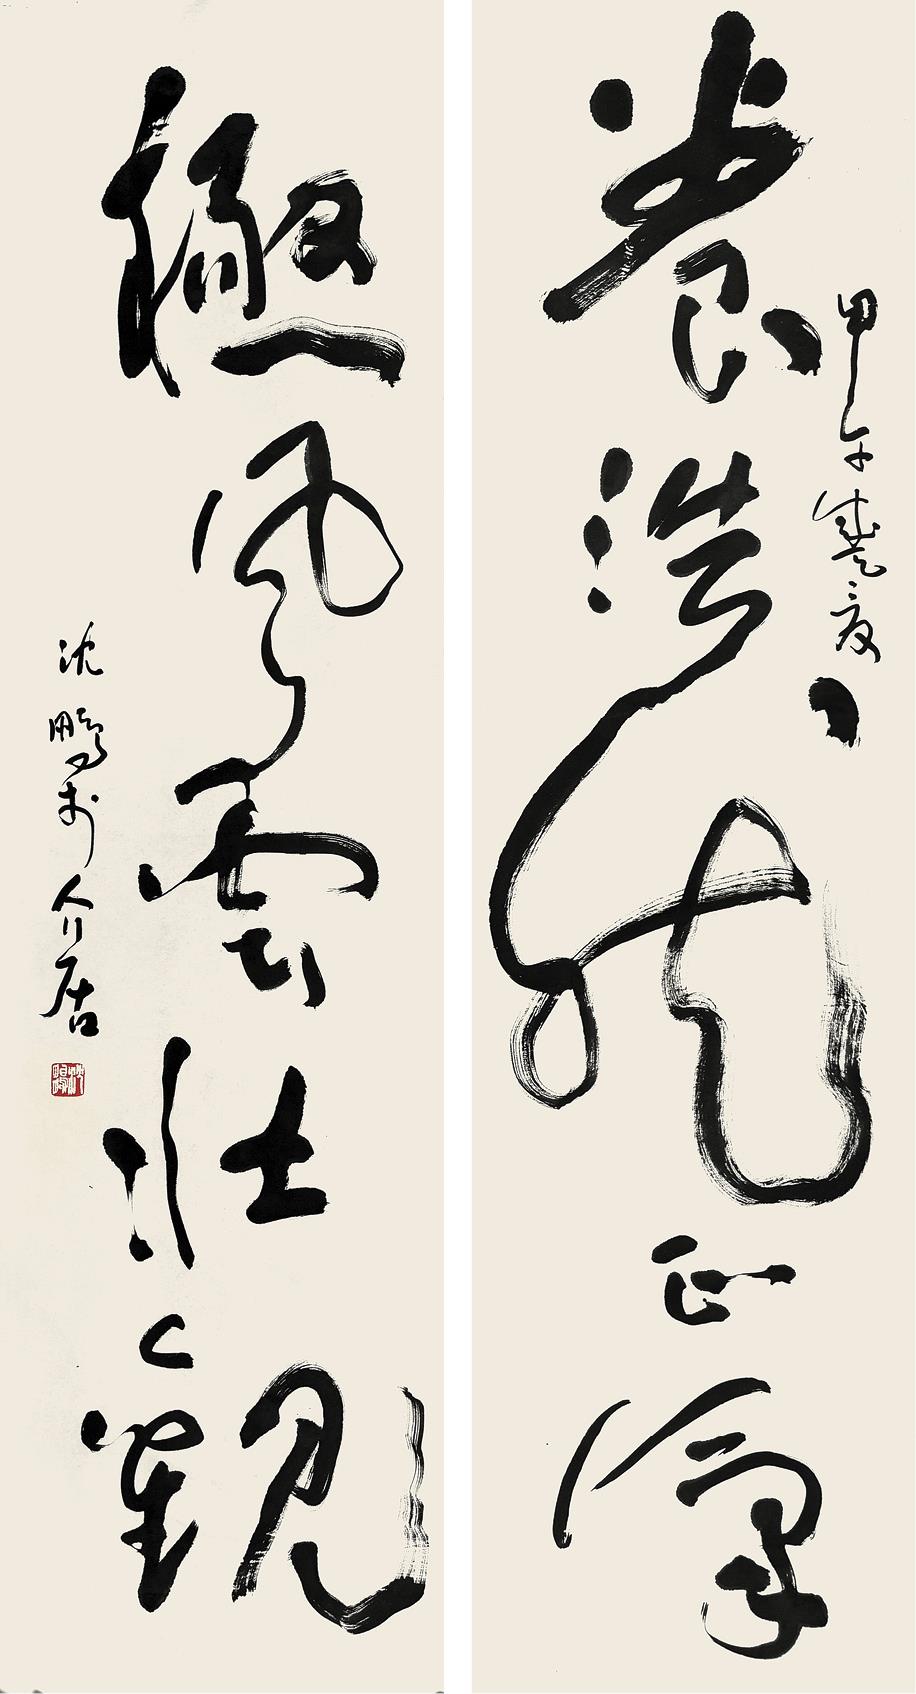 養浩然正氣
甲午盛夏
極風雲壯觀
沈鵬於介居